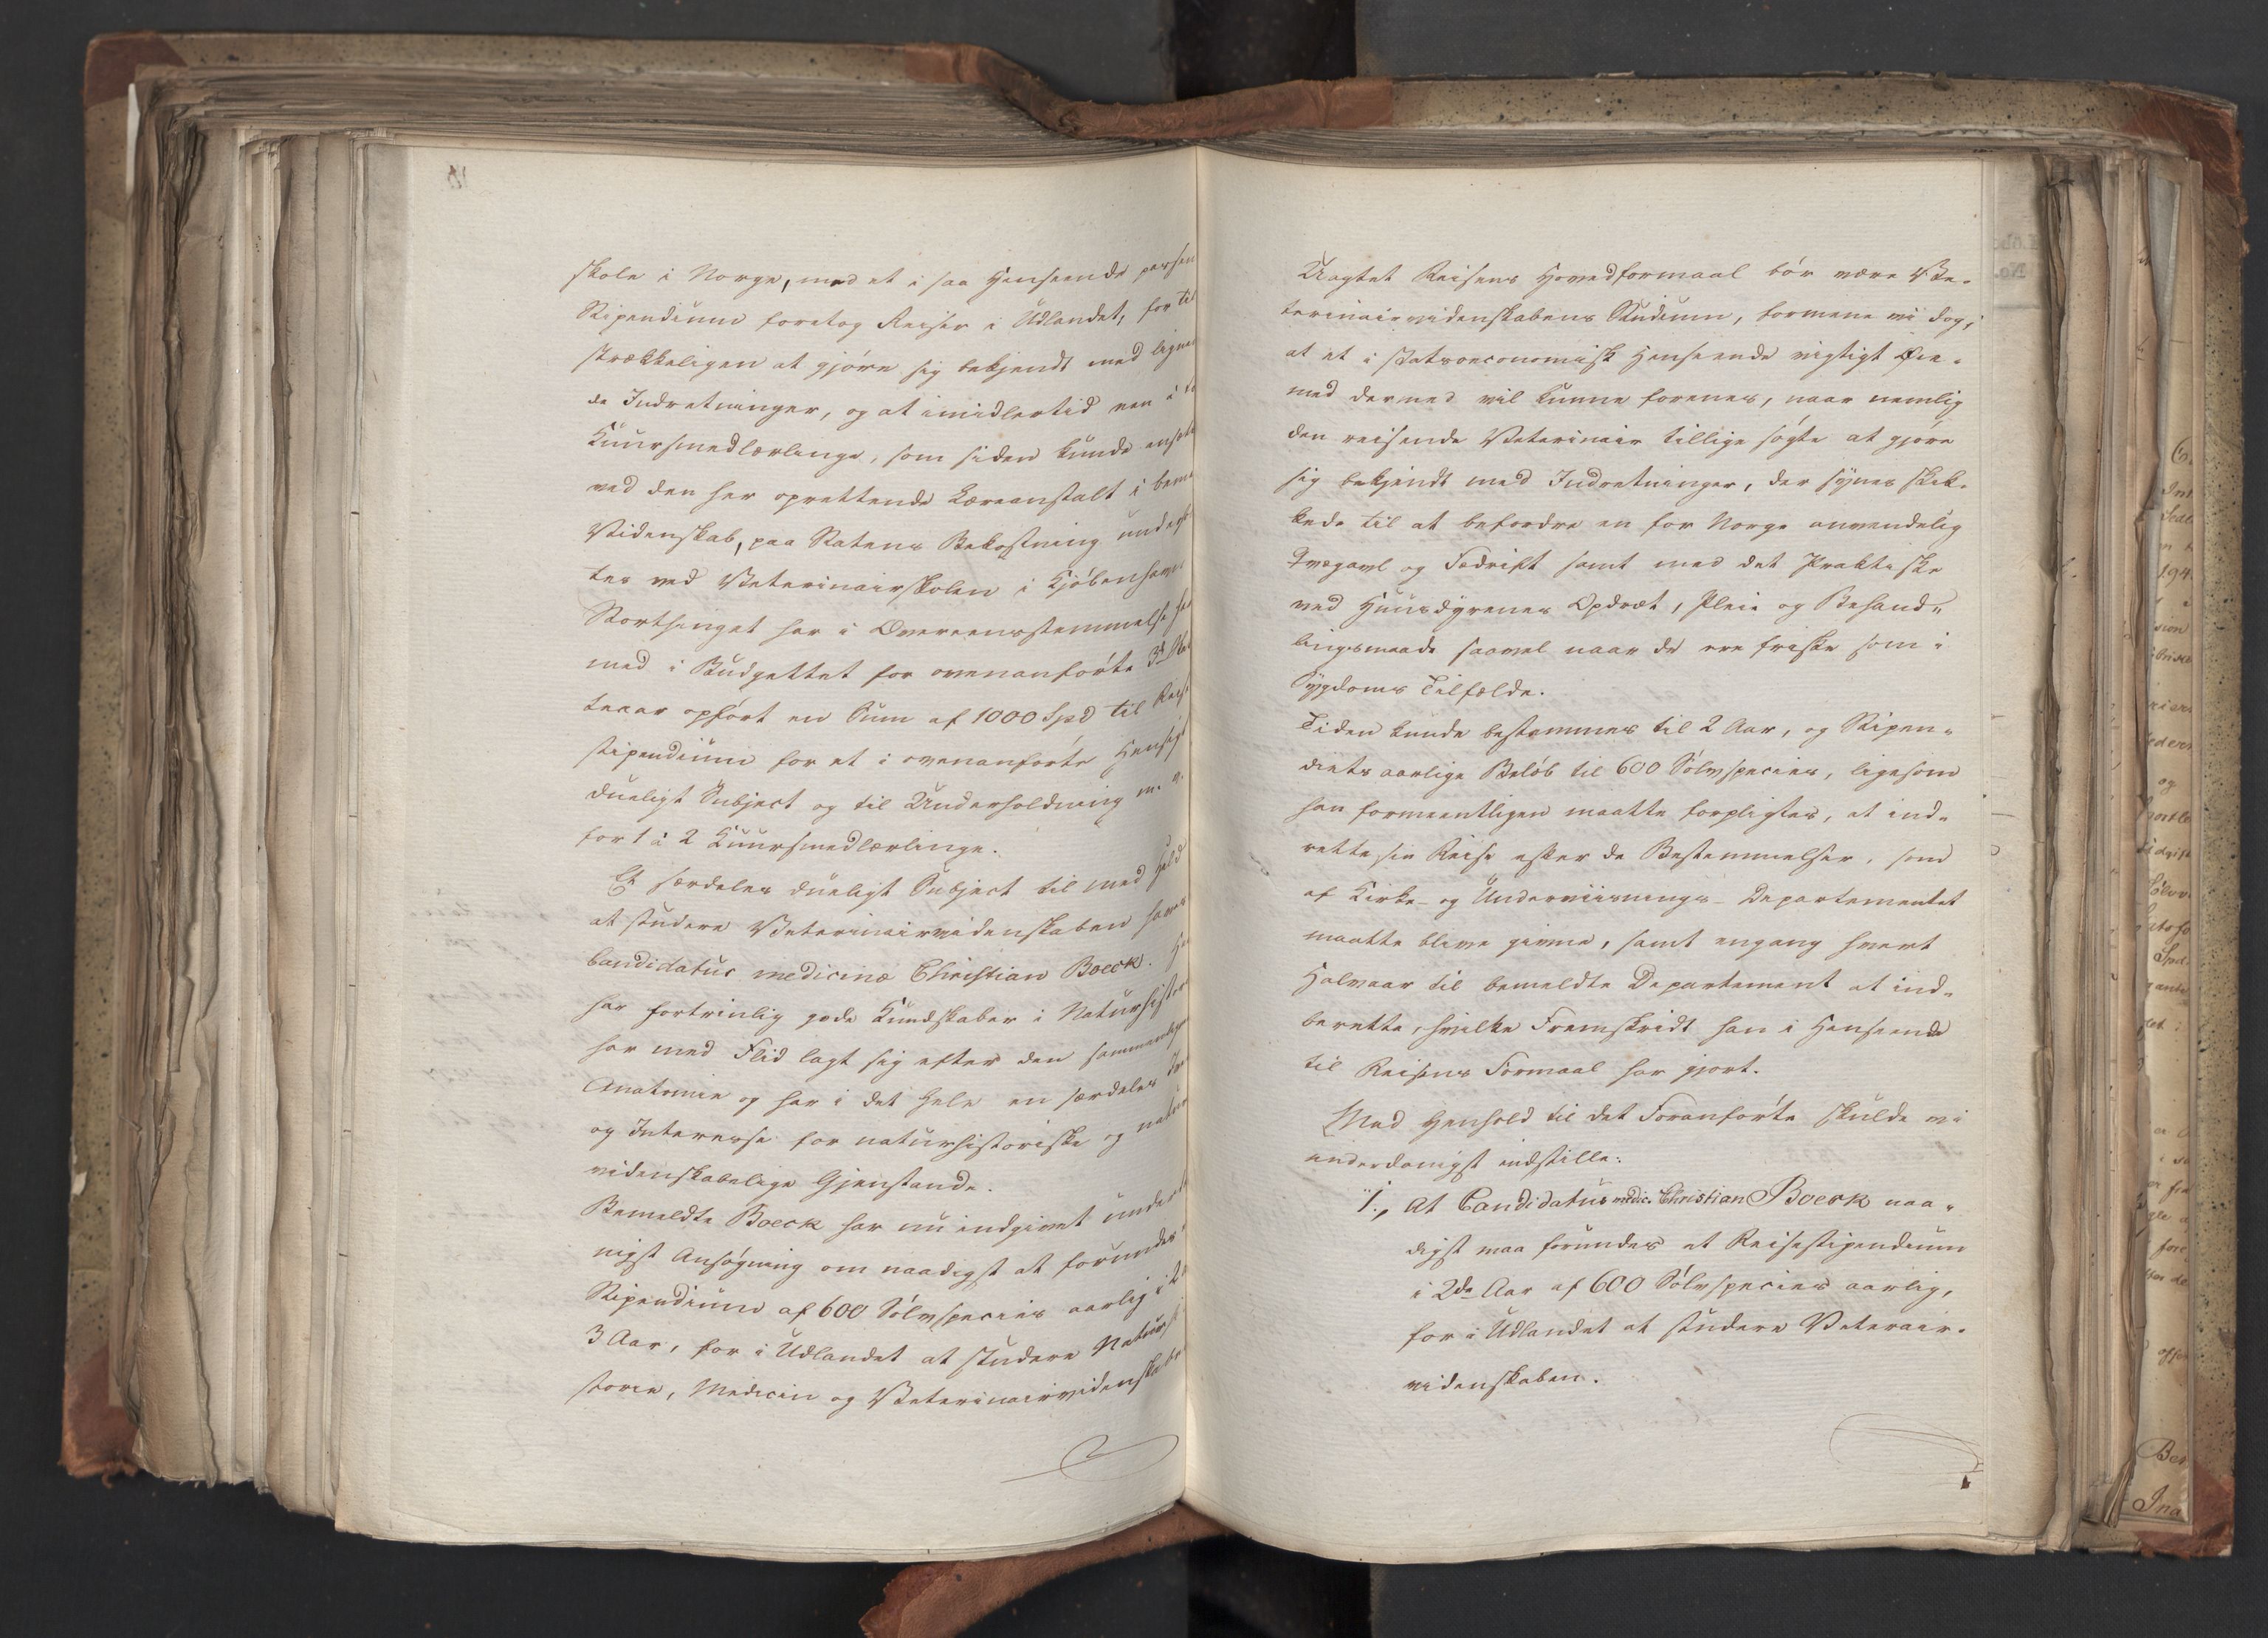 skole i Norge, med et i saa Henseende passen
Stipendium foretog Reiser i Udlandet, for til
strækkeligen at gjøre sig bekjendt med lignen
de Indretninger, og at imidlertid een à to
Kuursmedlærlinge, som siden kunde ansætt
ved den her oprettende Læreanstalt i bem
Videnskab, paa Statens Bekostning underh
tes ved Veterinairskolen i Kjöbenhavn
Storthinget har i Overeensstemmelse her
med i Budgettet for ovenanførte 3de Sta
tsaar opført en Sum af 1000 Spd til Reise
stipendium for et i ovenanførte Hensigt
dueligt Subject og til Underholdning m. v.
for 1 à 2 Kuursmedlærlinge.
Et særdeles dueligt Subject til med Held
at studere Veterinairvidenskaben haves
Candidatus medicinæ Christian Boeck. Ha
har fortrinlig gode Kundskaber i Naturhistor
har med Flid lagt sig efter den sammenlign
Anatomie og har i det Hele en særdeles
og Interesse for naturhistoriske og natur
videnskabelige Gjenstande.
Bemeldte Boeck har nu indgivet underda
nigst Ansøgning om naadigst at forundes
Stipendium af 600 Sølvspecies aarlig i 2
3 Aar, for i Udlandet at studere Naturhi
storie, Medicin og Veterinairvidenskabe
Uagtet Reisens Hovedformaal bør være Ve-
terinairvidenskabens Studium, formene vi dog,
at et i statsoeconomisk Henseende vigtigt Øie-
med dermed vil kunne forenes, naar nemlig
den reisende Veterinair tillige søgte at gjøre
sig bekjendt med Indretninger, der synes skik-
kede til at befordre en for Norge anvendelig
Qvægavl og Fædrift samt med det Praktiske
ved Huusdyrenes Opdræt, Pleie og Behand-
lingsmaade saavel naar de ere friske som i
Sygdoms Tilfælde.
Tiden kunde bestemmes til 2 Aar, og Stipen-
diets aarlige Beløb til 600 Sølvspecies, ligesom
han formeentligen maatte forpligtes, at ind-
rette sin Reise efter de Bestemmelser, som
af Kirke- og Underviisnings-Departementet
maatte blive givne, samt engang hvert
Halvaar til bemeldte Departement at ind-
berette, hvilke Fremskridt han i Henseende
til Reisens Formaal har gjort.
Med Henhold til det Foranførte skulde vi
underdanigst indstille:
1., At Candidatus medic. Christian Boeck naa-
digst maa forundes et Reisestipendium
i 2de Aar af 600 Sølvspecies aarlig,
for i Udlandet at studere Veterair-
videnskaben.